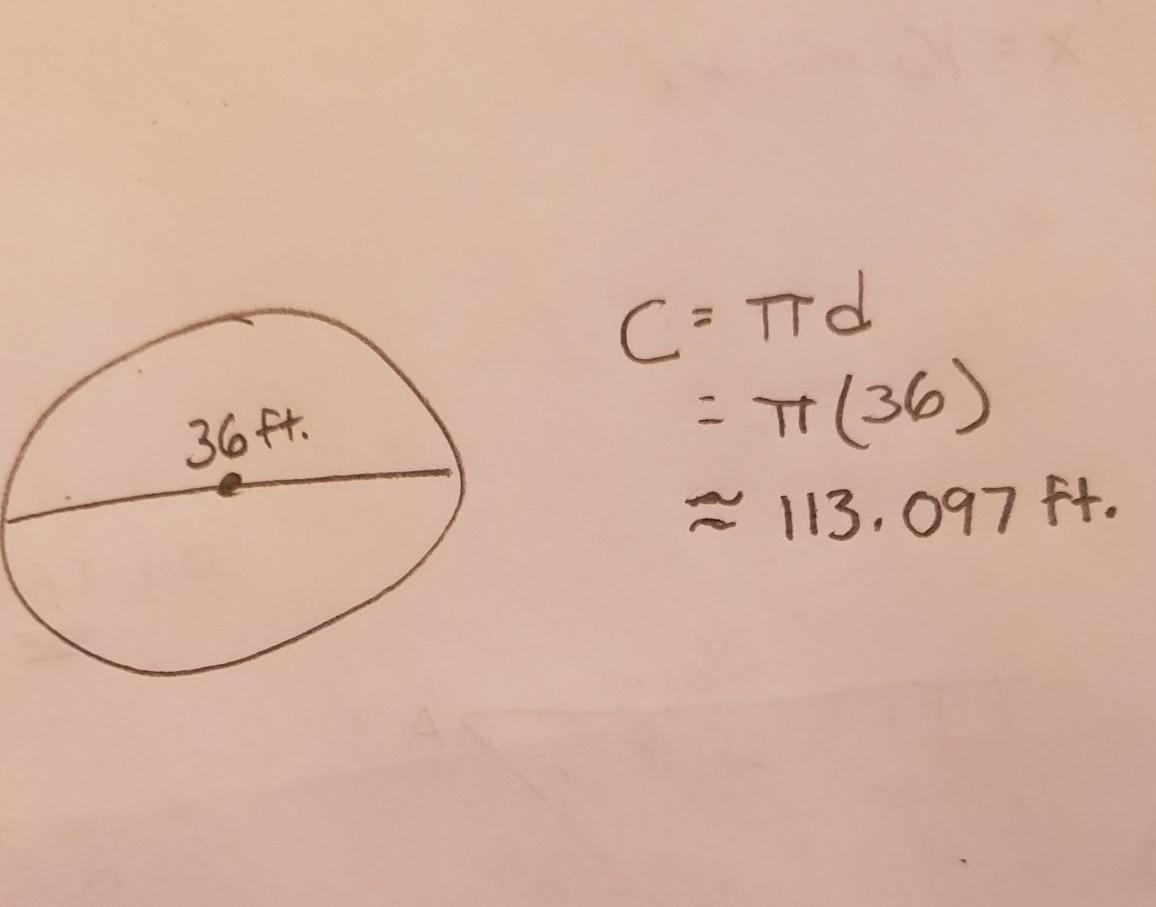 36 ft.
C = πd
= π(36)
≈ 113.097 ft.